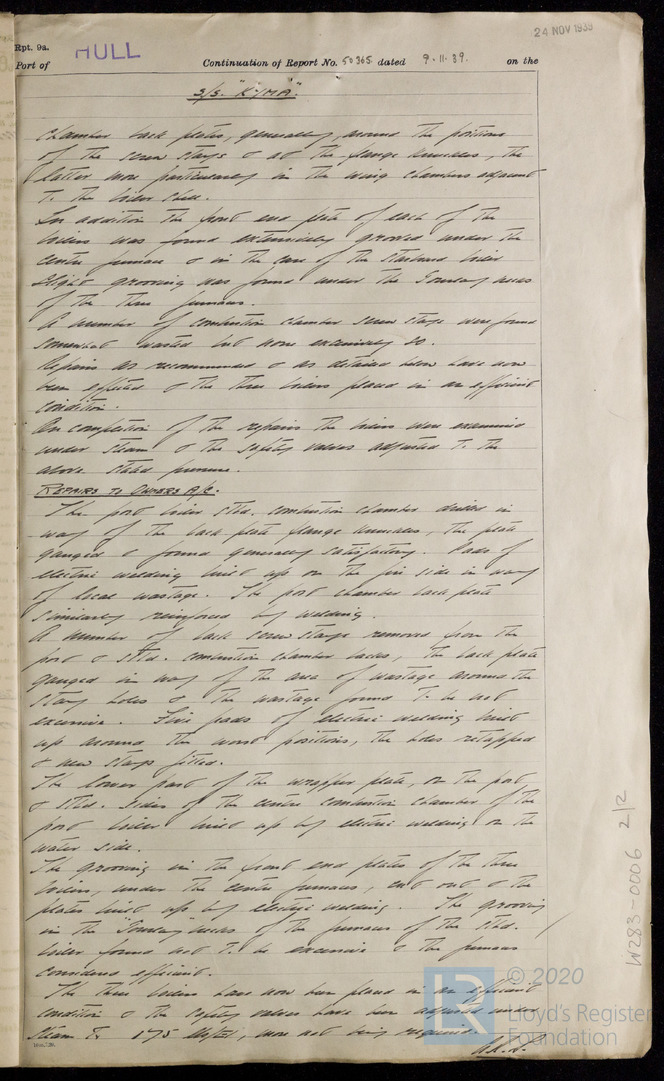 24 NOV 1939
Rpt. 9a.
HULL
Port of
Continuation of Report No. 50365 dated 9.11.39. on the
S/S. "KYMA".
Chamber back plates, generally, around the positions
of the screw stays & at the flange knuckles, the
latter more particularly in the wing chambers adjacent
to the boiler shell.
In addition the front end plate of each of the
boilers was found extensively grooved under the
centre furnace & in the case of the Starboard boiler
slight grooving was found under the Gourlay necks
of the three furnaces.
A number of combustion chamber screw stays were found
somewhat wasted but none excessively so.
Repairs as recommended & as detailed below have now
been effected & the three boilers placed in an efficient
condition.
On completion of the repairs the boilers were examined
under steam & the safety valves adjusted to the
above stated pressure.
REPAIRS TO OWNERS A/C.
The port boiler stbd. combustion chamber drilled in
way of the back plate flange knuckles, the plate
gauged & found generally satisfactory. Pads of
electric welding built up on the fire side in way
of local wastage. The port chamber back plate
similarly reinforced by welding.
A number of back screw stays removed from the
port & stbd. combustion chamber backs, the back plate
gauged in way of the area of wastage around the
stay holes & the wastage found to be not
excessive. Five pads of electric welding built
up around the worst positions, the holes retapped
& new stays fitted.
The lower part of the wrapper plate, on the port
& stbd. sides of the centre combustion chamber of the
port boiler built up by electric welding on the
water side.
The grooving in the front end plates of the three
boilers, under the centre furnaces, cut out & the
plates built up by electric welding. The grooving
in the "Gourlay" necks of the furnaces of the stbd.
boiler found not to be excessive & the furnaces
considered efficient.
The three boilers have now been placed in an efficient
condition & the safety valves have been adjusted under
steam to 175 lbs/sq", more not being required.
W283-0006 2/2
© 2020
Lloyd's Register
Foundation